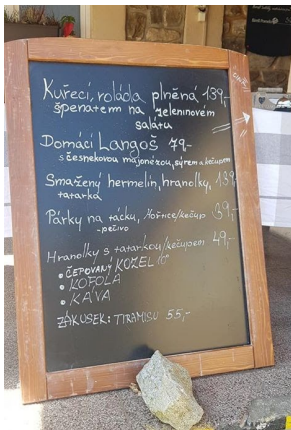 Kuřecí roláda plněná 139,-
špenátem na zeleninovém
salátu
Domácí Langoš 79,-
s česnekovou majonézou, sýrem a kečupem
Smažený hermelín, hranolky, 139
tatarka
Párky na tácku, hořčice/kečup 39,-
-pečivo
Hranolky s tatarkou/kečupem 49,-
• ČEPOVANÝ KOZEL 10°
• KOFOLA
• KÁVA
ZÁKUSEK: TIRAMISU 55,-